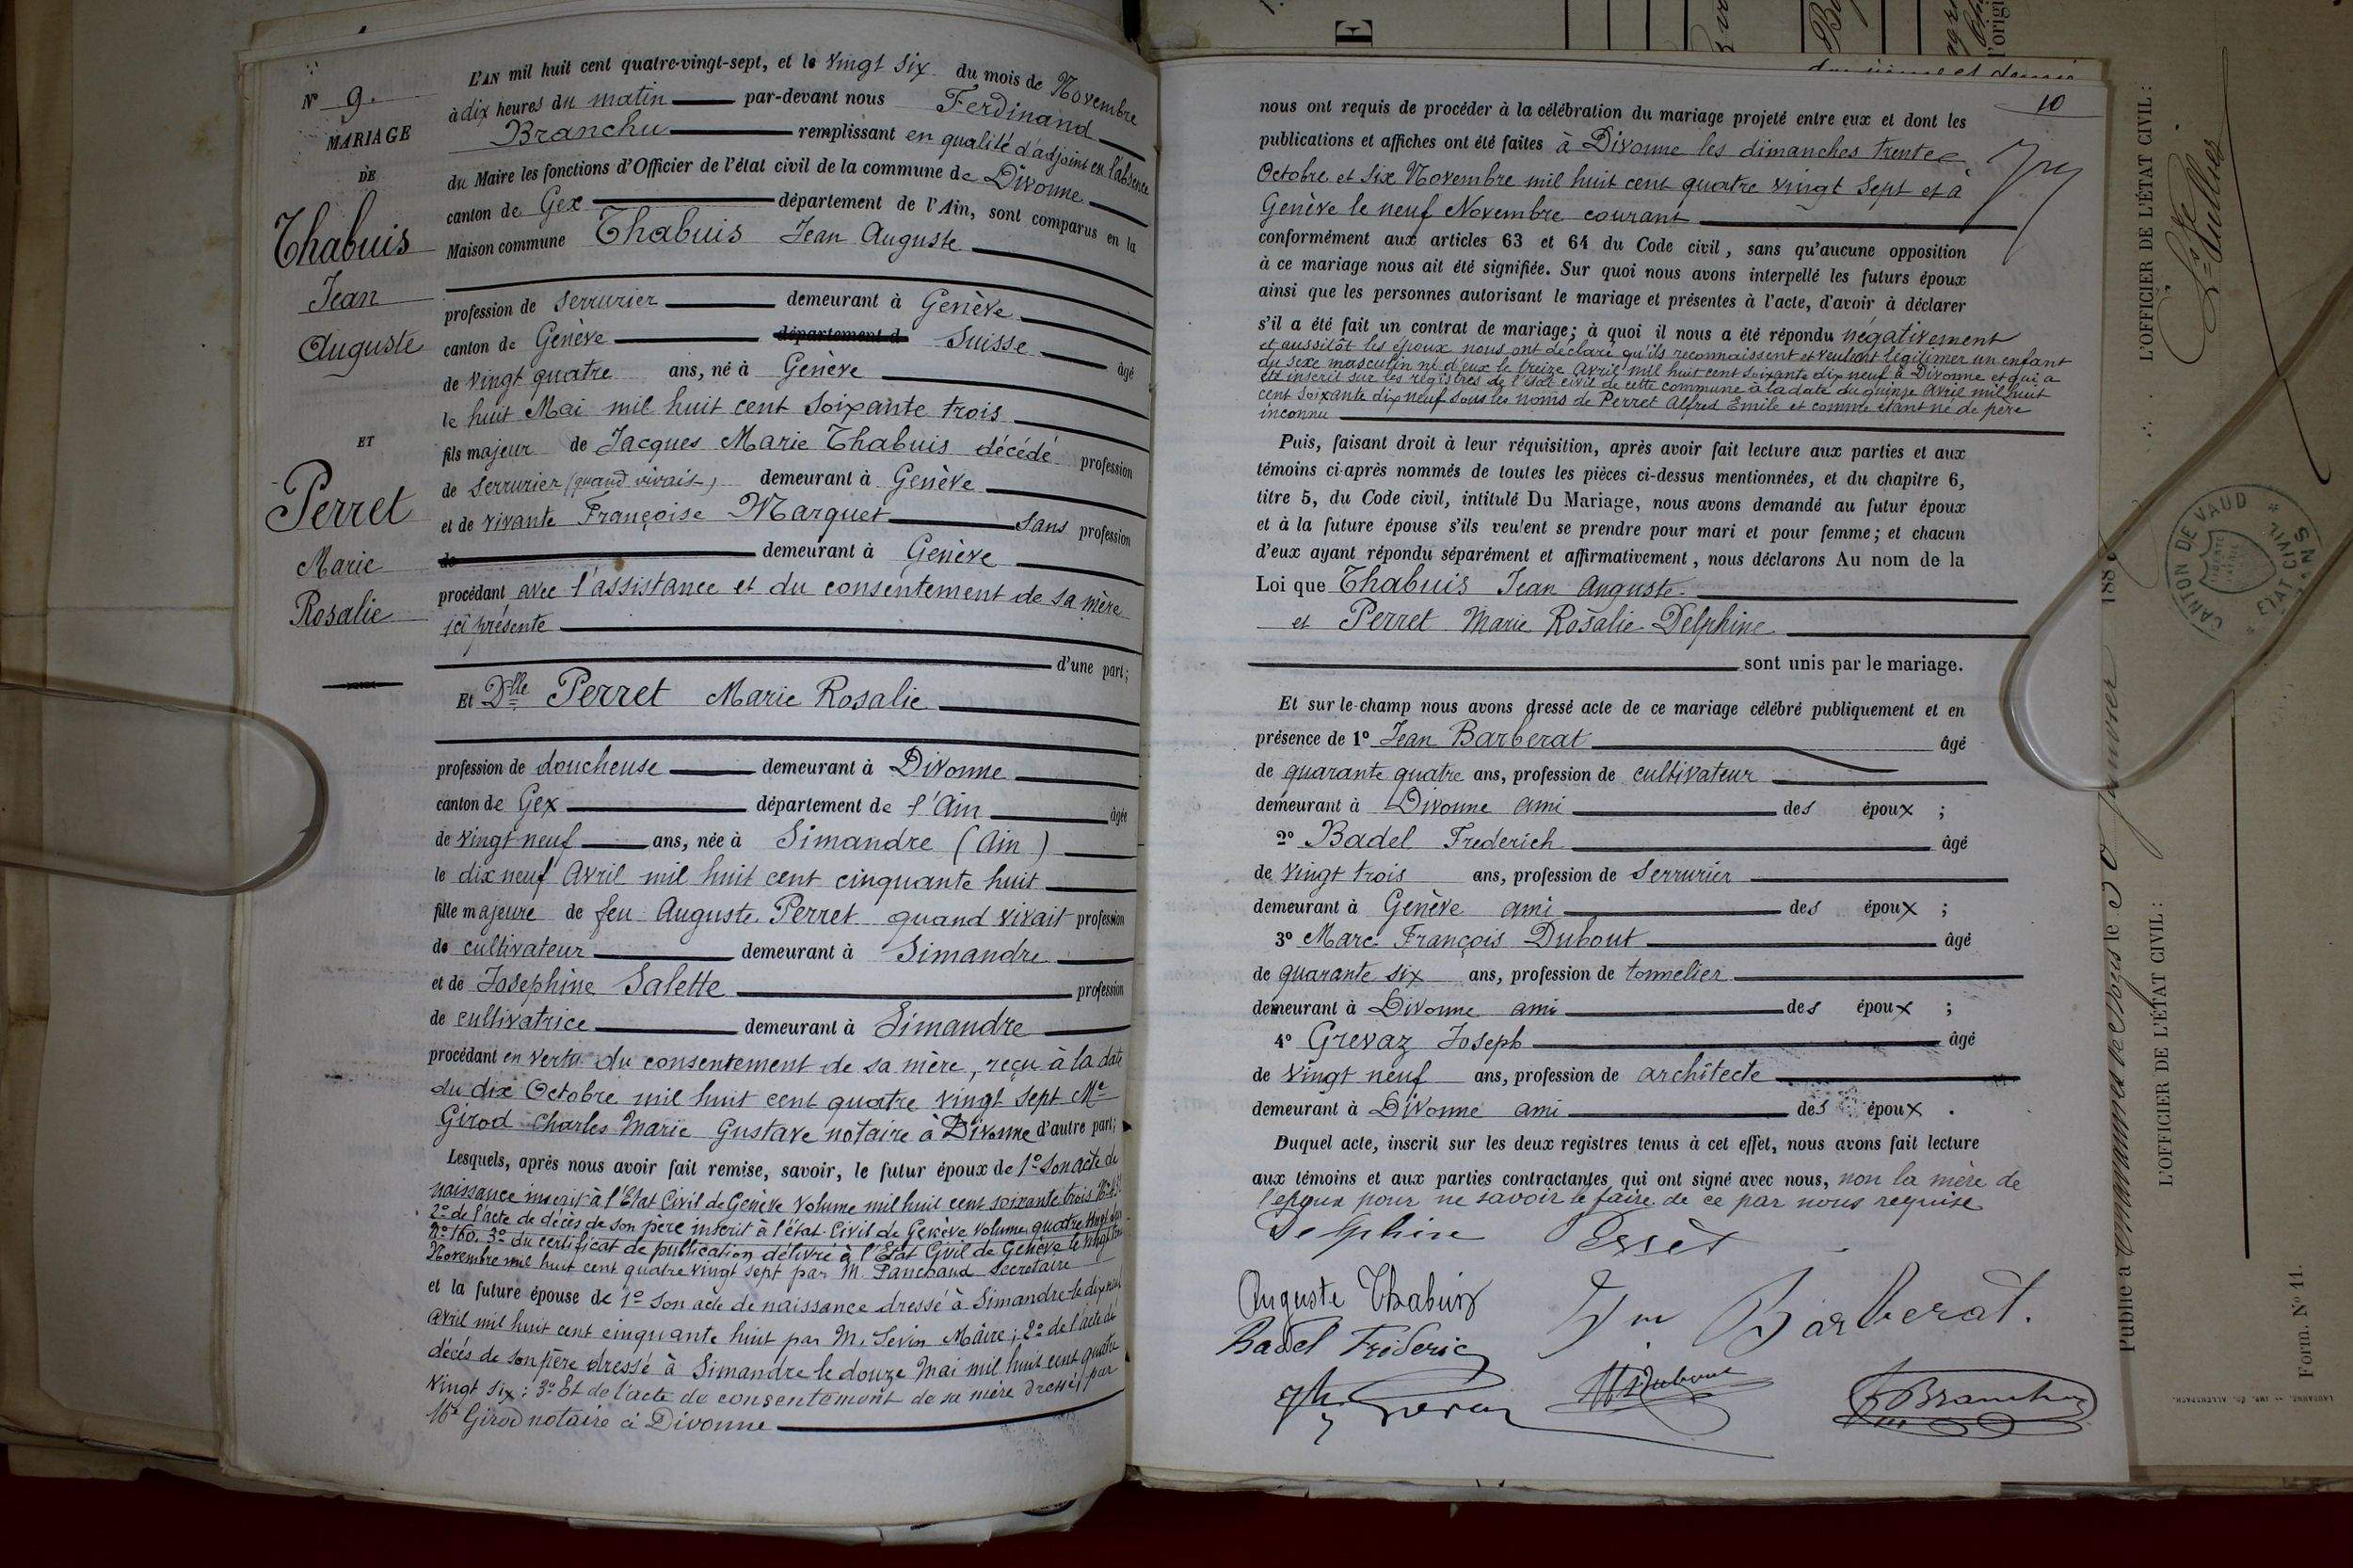 N° 9.
MARIAGE
DE
Thabuis
Jean
Auguste
ET
Perret
Marie
Rosalie
L'AN mil huit cent quatre-vingt-sept, et le vingt six du mois de Novembre
à dix heures du matin par-devant nous Ferdinand
Branchu remplissant en qualité d'adjoint en l'absence
du Maire les fonctions d'Officier de l'état civil de la commune de Divonne
canton de Gex département de l'Ain, sont comparus en la
Maison commune Thabuis Jean Auguste
profession de serrurier demeurant à Genève
canton de Genève département d Suisse âgé
de vingt quatre ans, né à Genève
le huit Mai mil huit cent soixante trois
fils majeur de Jacques Marie Thabuis décédé profession
de serrurier (quand vivait) demeurant à Genève
et de vivante Françoise Marquet sans profession
de demeurant à Genève
procédant avec l'assistance et du consentement de sa mère
ici présente
d'une part;
Et Dlle Perret Marie Rosalie
profession de doucheuse demeurant à Divonne
canton de Gex département de l'Ain âgée
de vingt neuf ans, née à Simandre (Ain)
le dix neuf Avril mil huit cent cinquante huit
fille majeure de feu Auguste Perret quand vivait profession
de cultivateur demeurant à Simandre
et de Josephine Salette profession
de cultivatrice demeurant à Simandre
procédant en vertu du consentement de sa mère, reçu à la date
du dix Octobre mil huit cent quatre vingt sept Me
Girod Charles Marie Gustave notaire à Divonne d'autre part;
Lesquels, après nous avoir fait remise, savoir, le futur époux de 1° son acte de
naissance inscrit à l'Etat Civil de Genève volume mil huit cent soixante trois
2° de l'acte de décès de son père inscrit à l'état Civil de Genève volume quatre vingt
n° 160. 3° du certificat de publication délivré à l'Etat Civil de Genève le vingt
Novembre mil huit cent quatre vingt sept par M. Panchaud Secrétaire
et la future épouse de 1° son acte de naissance dressé à Simandre le dix neuf
Avril mil huit cent cinquante huit par M. Maire; 2° de l'acte de
décès de son père dressé à Simandre le douze Mai mil huit cent quatre
vingt six; 3° Et de l'acte de consentement de sa mère dressé par
Me Girod notaire à Divonne
10
nous ont requis de procéder à la célébration du mariage projeté entre eux et dont les
publications et affiches ont été faites à Divonne les dimanches trente
Octobre et six Novembre mil huit cent quatre vingt sept et à
Genève le neuf Novembre courant
conformément aux articles 63 et 64 du Code civil, sans qu'aucune opposition
à ce mariage nous ait été signifiée. Sur quoi nous avons interpellé les futurs époux
ainsi que les personnes autorisant le mariage et présentes à l'acte, d'avoir à déclarer
s'il a été fait un contrat de mariage; à quoi il nous a été répondu négativement
et aussitôt les époux nous ont déclaré qu'ils reconnaissent et veulent légitimer un enfant
du sexe masculin né d'eux le treize Avril mil huit cent soixante dix neuf à Divonne et qui a
été inscrit sur les registres de l'état civil de cette commune à la date du quinze Avril mil huit
cent soixante dix neuf sous les noms de Perret Alfred Emile et comme étant né de père
inconnu
Puis, faisant droit à leur réquisition, après avoir fait lecture aux parties et aux
témoins ci-après nommés de toutes les pièces ci-dessus mentionnées, et du chapitre 6,
titre 5, du Code civil, intitulé Du Mariage, nous avons demandé au futur époux
et à la future épouse s'ils veulent se prendre pour mari et pour femme; et chacun
d'eux ayant répondu séparément et affirmativement, nous déclarons Au nom de la
Loi que Thabuis Jean Auguste
et Perret Marie Rosalie Delphine
sont unis par le mariage.
Et sur-le-champ nous avons dressé acte de ce mariage célébré publiquement et en
présence de 1° Jean Barberat âgé
de quarante quatre ans, profession de cultivateur
demeurant à Divonne ami des époux;
2° Badel Frederich âgé
de vingt trois ans, profession de serrurier
demeurant à Genève ami des époux;
3° Marc François Dubout âgé
de quarante six ans, profession de tonnelier
demeurant à Divonne ami des époux;
4° Grevaz Joseph âgé
de vingt neuf ans, profession de architecte
demeurant à Divonne ami des époux.
Duquel acte, inscrit sur les deux registres tenus à cet effet, nous avons fait lecture
aux témoins et aux parties contractantes qui ont signé avec nous, non la mère de
l'époux pour ne savoir le faire de ce par nous requise
Delphine Perrèt
Auguste Thabuis
Jn Barberat.
Badel Fréderic
Dubout
F Branchu
L'OFFICIER DE L'ÉTAT CIVIL:
CANTON DE VAUD
ÉTAT CIVIL
L'OFFICIER DE L'ÉTAT CIVIL:
Publié à le 30 janvier 188
Form. N° 11.